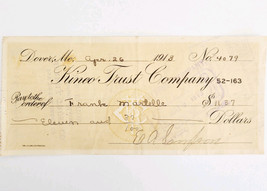 Dover, Me. Apr. 26 1913 No. 4079
Kineo Trust Company 52-163
Pay to the
order of Frank Martelle $11.07
Eleven and 07 Dollars